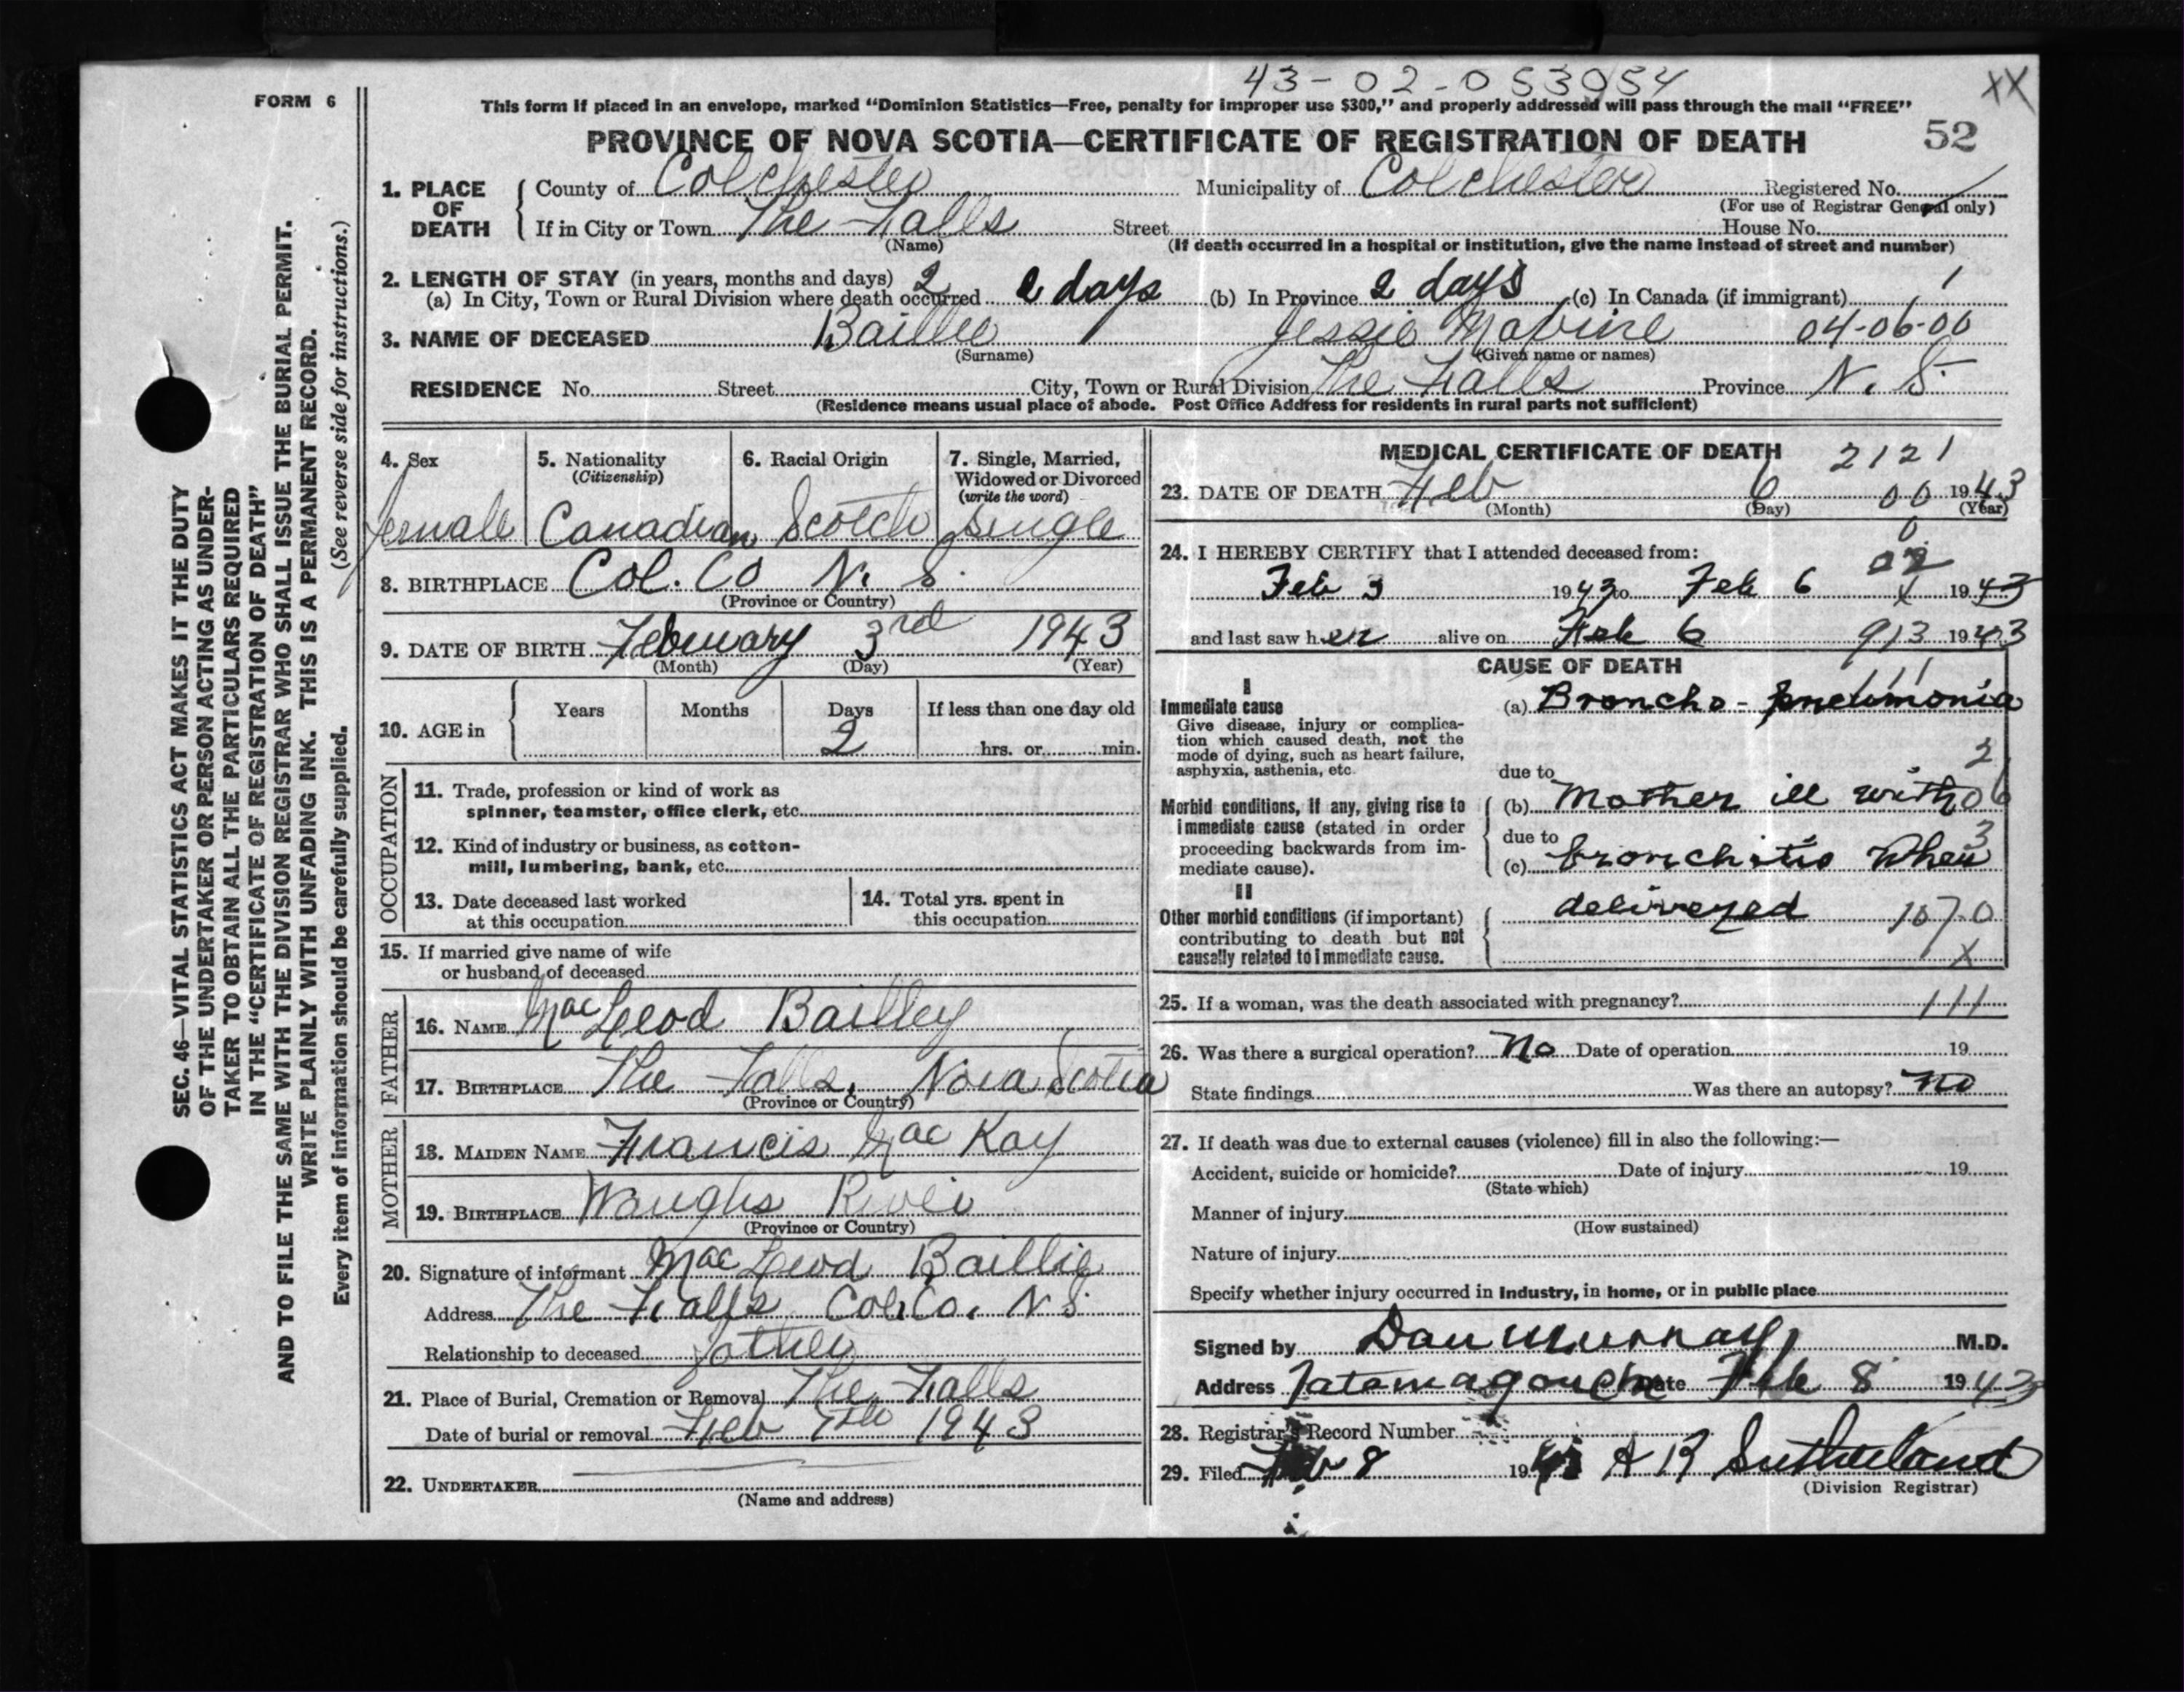 43-02-053054
XX
FORM 6
This form if placed in an envelope, marked “Dominion Statistics—Free, penalty for improper use $300,” and properly addressed will pass through the mail “FREE”
PROVINCE OF NOVA SCOTIA—CERTIFICATE OF REGISTRATION OF DEATH
52
1. PLACE OF DEATH
County of Colchester Municipality of Colchester Registered No.
(For use of Registrar General only)
If in City or Town The Falls Street House No.
(Name) (If death occurred in a hospital or institution, give the name instead of street and number)
2. LENGTH OF STAY (in years, months and days) 2
(a) In City, Town or Rural Division where death occurred 2 days (b) In Province 2 days (c) In Canada (if immigrant)
3. NAME OF DECEASED Baillie Jessie 04-06-00
(Surname) (Given name or names)
RESIDENCE No. Street City, Town or Rural Division The Falls Province N. S.
(Residence means usual place of abode. Post Office Address for residents in rural parts not sufficient)
4. Sex
female
5. Nationality
(Citizenship)
Canadian
6. Racial Origin
Scotch
7. Single, Married,
Widowed or Divorced
(write the word)
Single
8. BIRTHPLACE Col. Co N. S.
(Province or Country)
9. DATE OF BIRTH February 3rd 1943
(Month) (Day) (Year)
10. AGE in
Years Months Days If less than one day old
2 hrs. or min.
OCCUPATION
11. Trade, profession or kind of work as
spinner, teamster, office clerk, etc.
12. Kind of industry or business, as cotton-
mill, lumbering, bank, etc.
13. Date deceased last worked
at this occupation
14. Total yrs. spent in
this occupation
15. If married give name of wife
or husband of deceased
FATHER
16. NAME MacLeod Bailley
17. BIRTHPLACE The Falls, Nova Scotia
(Province or Country)
MOTHER
18. MAIDEN NAME Francis MacKay
19. BIRTHPLACE Waughs River
(Province or Country)
20. Signature of informant MacLeod Baillie
Address The Falls Col. Co. N S.
Relationship to deceased father
21. Place of Burial, Cremation or Removal The Falls
Date of burial or removal Feb 7th 1943
22. UNDERTAKER
(Name and address)
MEDICAL CERTIFICATE OF DEATH 2121
23. DATE OF DEATH Feb 6 00 1943
(Month) (Day) (Year)
24. I HEREBY CERTIFY that I attended deceased from:
Feb 3 1943 to Feb 6 1943
and last saw her alive on Feb 6 913 1943
CAUSE OF DEATH
I
Immediate cause
Give disease, injury or complica-
tion which caused death, not the
mode of dying, such as heart failure,
asphyxia, asthenia, etc.
(a) Broncho-pneumonia
due to
Morbid conditions, if any, giving rise to
immediate cause (stated in order
proceeding backwards from im-
mediate cause).
(b) Mother ill with
due to
(c) bronchitis when
II
Other morbid conditions (if important)
contributing to death but not
causally related to immediate cause.
delivered 1070
X
25. If a woman, was the death associated with pregnancy? 111
26. Was there a surgical operation? No Date of operation 19
State findings Was there an autopsy? No
27. If death was due to external causes (violence) fill in also the following:—
Accident, suicide or homicide? Date of injury 19
(State which)
Manner of injury
(How sustained)
Nature of injury
Specify whether injury occurred in industry, in home, or in public place
Signed by Dan Murray M.D.
Address Tatamagouche Date Feb 8 1943
28. Registrar's Record Number
29. Filed Feb 8 19 A R Sutherland
(Division Registrar)
SEC. 46—VITAL STATISTICS ACT MAKES IT THE DUTY
OF THE UNDERTAKER OR PERSON ACTING AS UNDER-
TAKER TO OBTAIN ALL THE PARTICULARS REQUIRED
IN THE “CERTIFICATE OF REGISTRATION OF DEATH”
AND TO FILE THE SAME WITH THE DIVISION REGISTRAR WHO SHALL ISSUE THE BURIAL PERMIT.
WRITE PLAINLY WITH UNFADING INK. THIS IS A PERMANENT RECORD.
Every item of information should be carefully supplied. (See reverse side for instructions.)